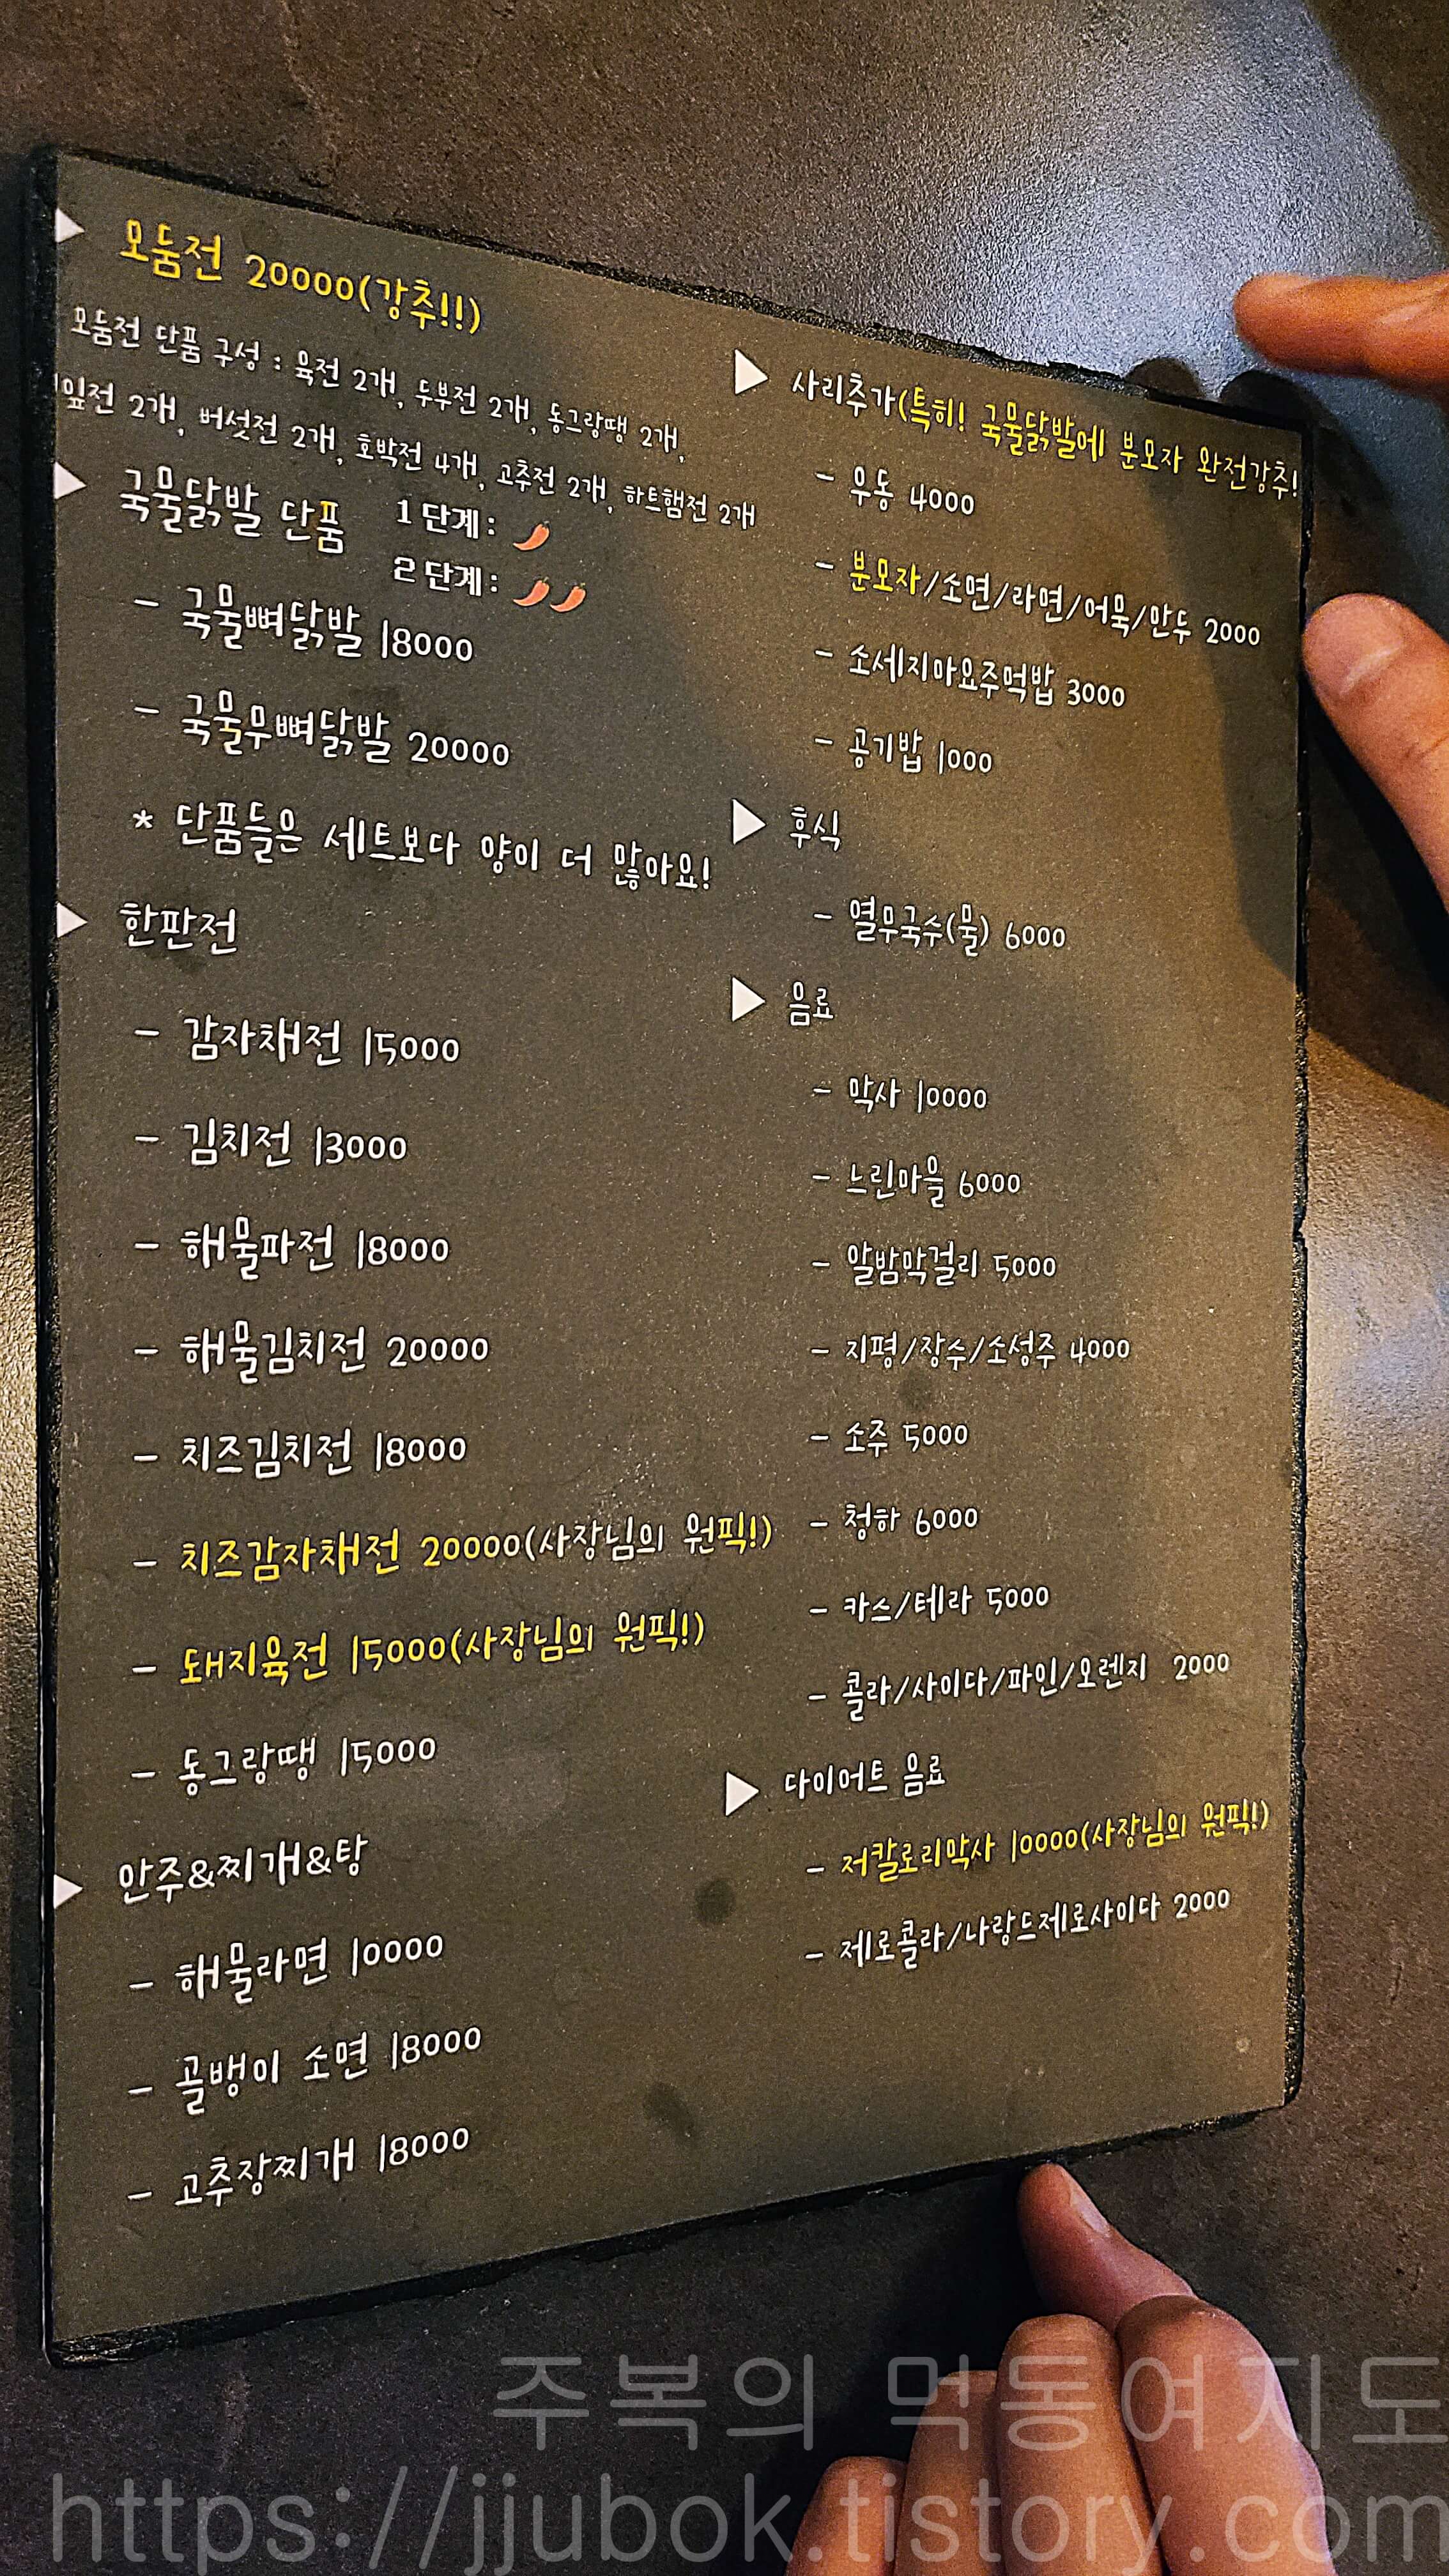 모둠전 20000(강추!!)
모둠전 단품 구성 : 육전 2개, 두부전 2개, 동그랑땡 2개,
2개, 버섯전 2개, 호박전 4개, 고추전 2개, 하트햄전 2개
국물닭발 단품
1 단계 :
2 단계 :
- 국물뼈닭발 18000
- 국물무뼈닭발 20000
* 단품들은 세트보다 양이 더 많아요!
한판전
- 감자채전 15000
- 김치전 13000
- 해물파전 18000
- 해물김치전 20000
- 치즈김치전 18000
- 치즈감자채전 20000(사장님의 원픽!)
- 돼지육전 15000(사장님의 원픽!)
- 동그랑땡 15000
안주&찌개&탕
- 해물라면 10000
- 골뱅이 소면 18000
- 고추장찌개 18000
사리추가(특히! 국물닭발에 분모자 완전강추!
- 우동 4000
- 분모자/소면/라면/어묵/만두 2000
- 소세지마요주먹밥 3000
- 공기밥 1000
후식
- 열무국수(물) 6000
음료
- 막사 10000
- 느린마을 6000
- 알밤막걸리 5000
- 지평/장수/소성주 4000
- 소주 5000
- 청하 6000
- 카스/테라 5000
- 콜라/사이다/파인/오렌지 2000
다이어트 음료
- 저칼로리막사 10000(사장님의 원픽!)
- 제로콜라/나랑드제로사이다 2000
주복의 먹동여지도
https://jjubok.tistory.com